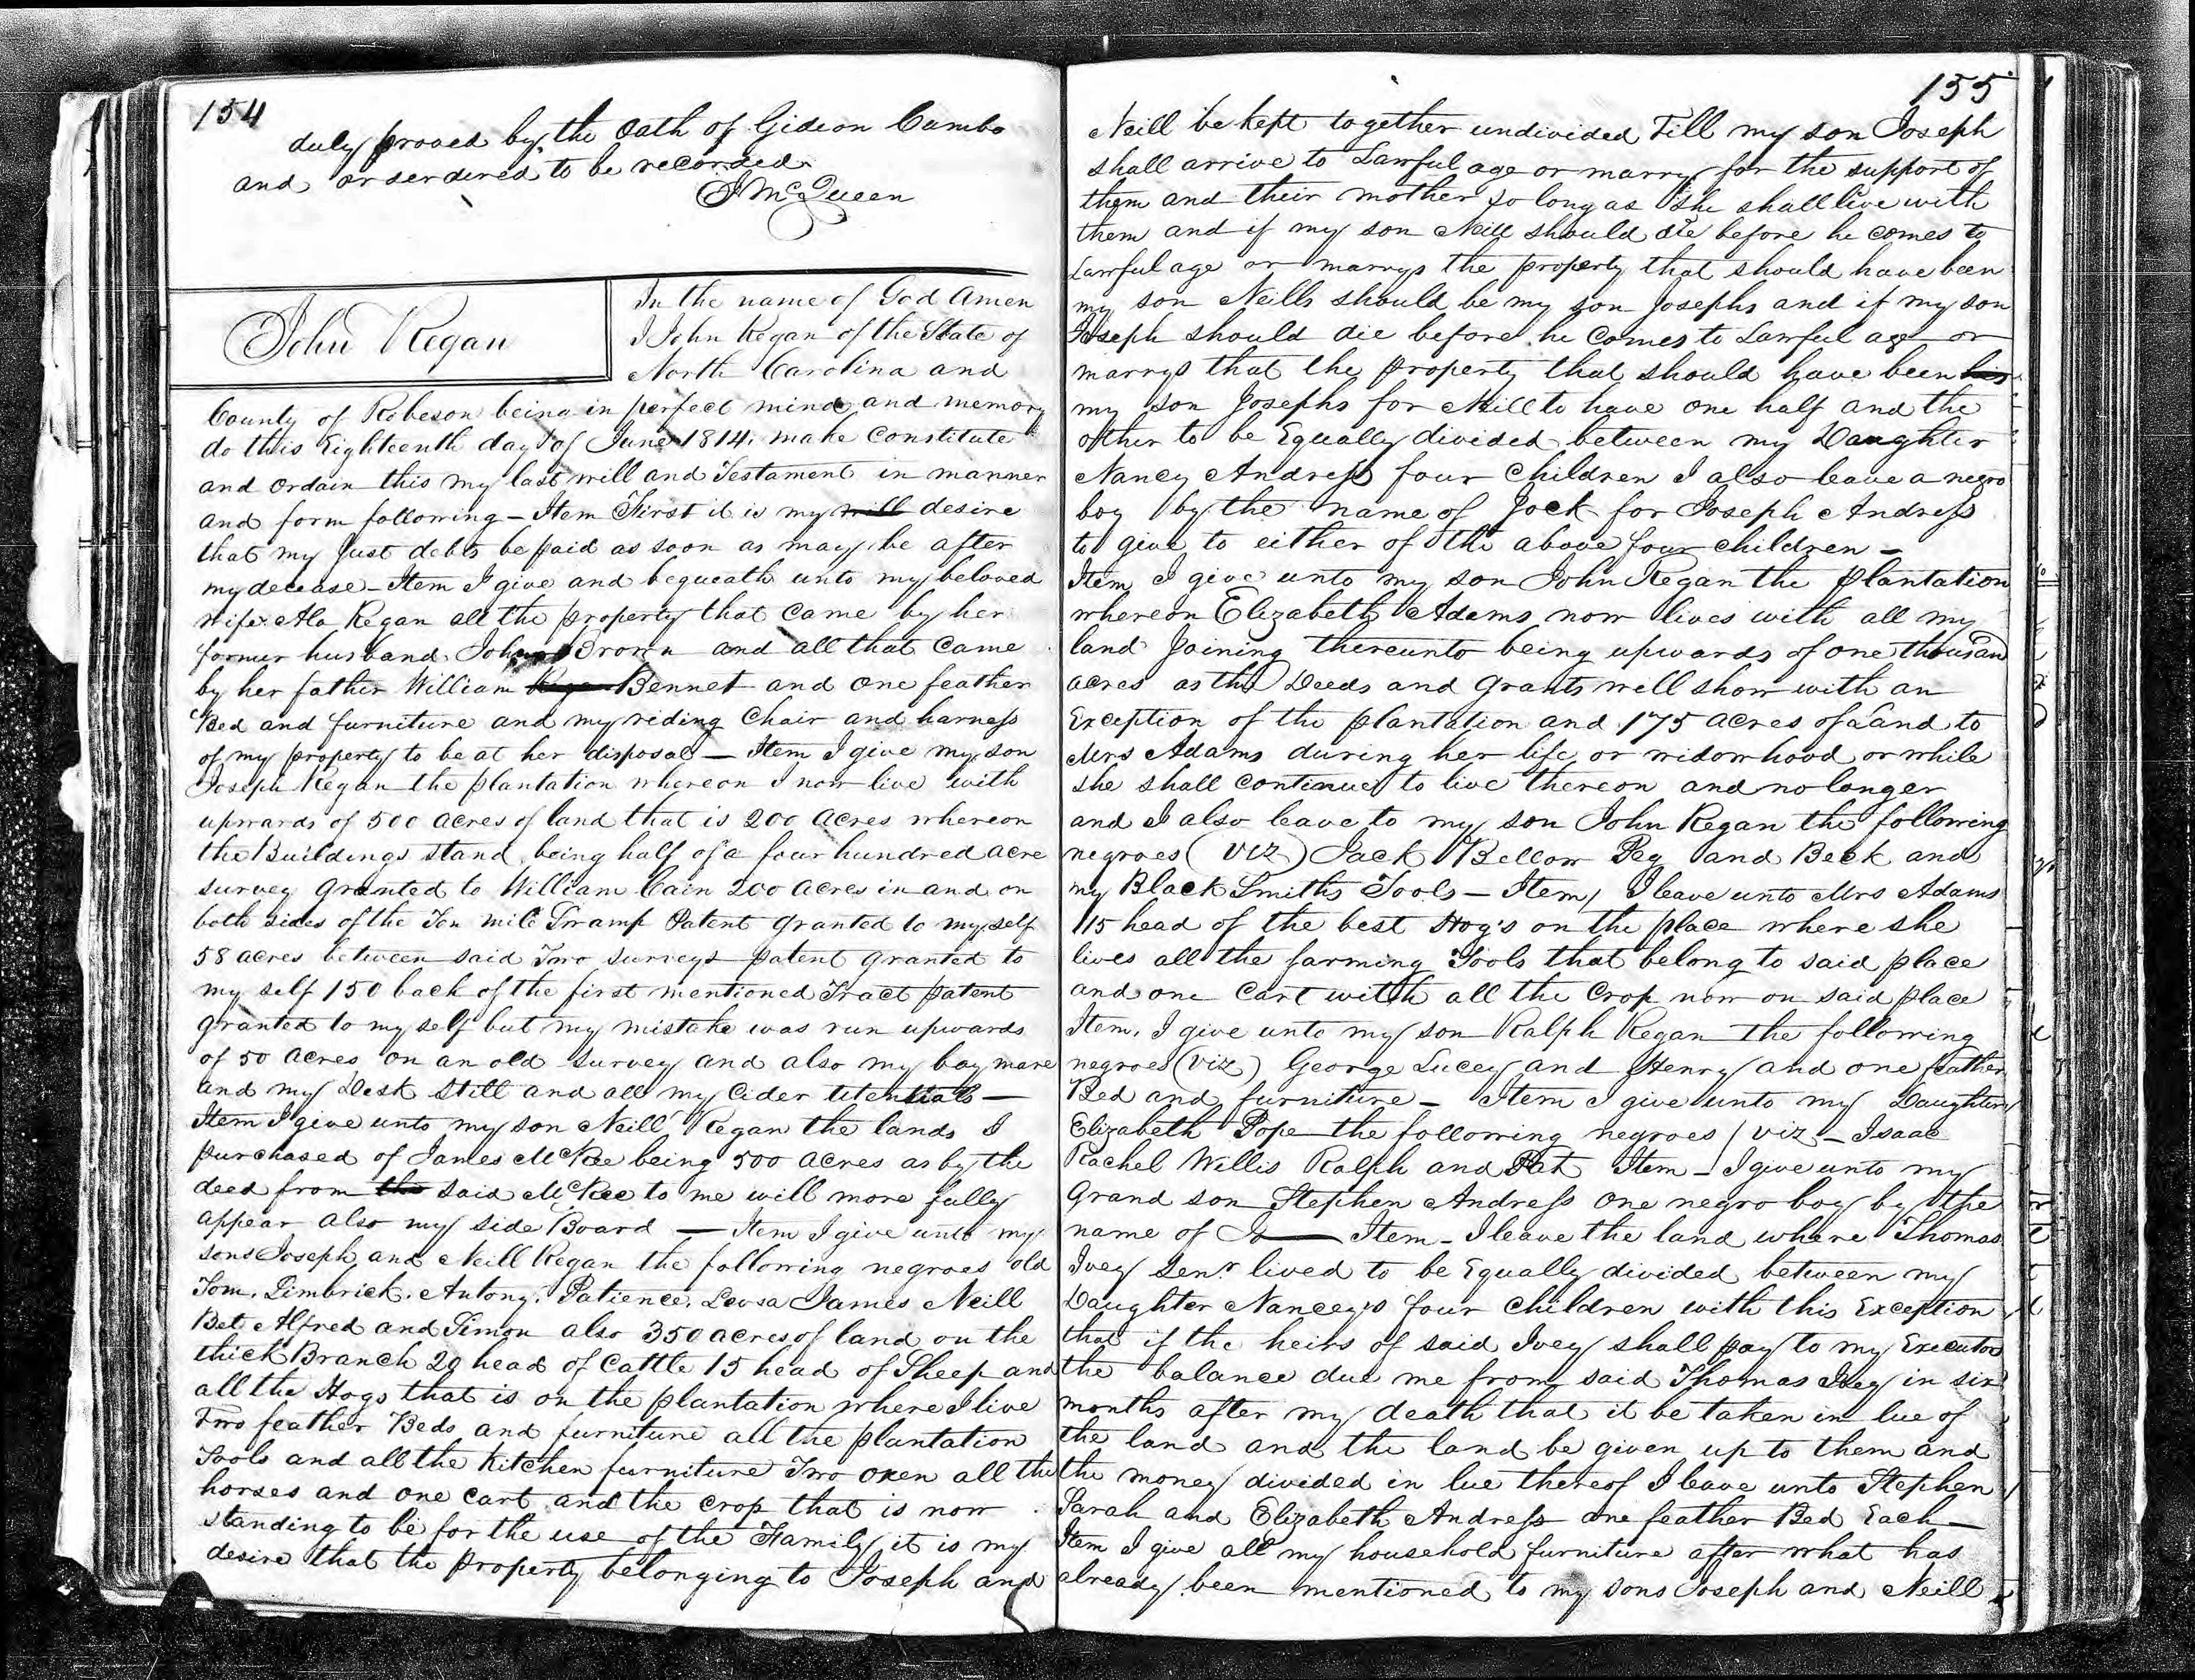 154
duly proved by the Oath of Gideon Cumbo
and orderdered to be recorded
S McQueen
John Regan
In the name of God Amen
I John Regan of the State of
North Carolina and
County of Robeson being in perfect mind and memory
do this Eighteenth day of June 1814. make Constitute
and Ordain this my last will and Testament in manner
and form following – Item First it is my will desire
that my Just debts be paid as soon as may be after
my decease – Item I give and bequeath unto my beloved
wife Ala Regan all the property that Came by her
former husband John Brown and all that Came
by her father William Bennet and One feather
Bed and furniture and my riding Chair and harness
of my property to be at her disposal — Item I give my son
Joseph Regan the plantation whereon I now live with
upwards of 500 acres of land that is 200 Acres whereon
the Buildings stand being half of a four hundred acre
survey Granted to William Cain 200 Acres in and on
both sides of the Ten mile Swamp Patent Granted to my self
58 acres between said Two surveys patent granted to
my self 150 back of the first mentioned Tract patent
granted to my self but my mistake was run upwards
of 50 acres on an old survey and also my bay mare
and my Desk Still and all my Cider utentials —
Item I give unto my son Neill Regan the lands I
purchased of James McKee being 500 acres as by the
deed from the said McKee to me will more fully
appear also my side Board — Item I give unto my
sons Joseph and Neill Regan the following negroes old
Tom. Limbrick. Antony. Patience. Levsa James Neill
Bet Alfred and Simon also 350 acres of land on the
thick Branch 29 head of Cattle 15 head of Sheep and
all the Hogs that is on the plantation where I live
Two feather Beds and furniture all the plantation
Tools and all the Kitchen furniture Two oxen all the
horses and one Cart and the crop that is now
standing to be for the use of the Family it is my
desire that the property belonging to Joseph and
155
Neill be kept together undivided Till my son Joseph
shall arrive to Lawful age or marry for the support of
them and their mother so long as she shall live with
them and if my son Neill should die before he comes to
Lawful age or marrys the property that should have been
my son Neills should be my son Josephs and if my son
Joseph should die before he Comes to Lawful age or
marrys that the property that should have been his
my son Josephs for Neill to have one half and the
other to be Equally divided between my Daughter
Nancy Andress four Children I also leave a negro
boy by the name of Jock for Joseph Andress
to give to either of the above four children –
Item I give unto my son John Regan the plantation
whereon Elizabeth Adams now lives with all my
land Joining thereunto being upwards of one thousan
acres as the Deeds and Grants will show with an
Exception of the plantation and 175 acres of Land to
Mrs Adams during her life or widowhood or while
she shall continue to live thereon and no longer
and I also leave to my son John Regan the following
negroes (viz) Jack Bellow Peg and Beck and
my Black Smiths Tools – Item I leave unto Mrs Adams
15 head of the best Hog's on the place where she
lives all the farming Tools that belong to said place
and one Cart with all the Crop now on said place
Item. I give unto my son Ralph Regan the following
negroes (viz) George Lucey and Henry and one feather
Bed and furniture – Item I give unto my Daughter
Elizabeth Pope the following negroes / viz – Isaac
Rachel Willis Ralph and Pat Item – I give unto my
Grand son Stephen Andress One negro boy by the
name of Is— Item – I leave the land where Thomas
Ivey Senr lived to be Equally divided between my
Daughter Nanceys four Children with this Exception
that if the heirs of said Ivey shall pay to my Executor
the balance due me from said Thomas Ivey in six
months after my death that it be taken in lue of
the land and the land be given up to them and
the money divided in lue thereof I leave unto Stephen
Sarah and Elizabeth Andress one feather Bed Each —
Item I give all my household furniture after what has
already been mentioned to my sons Joseph and Neill